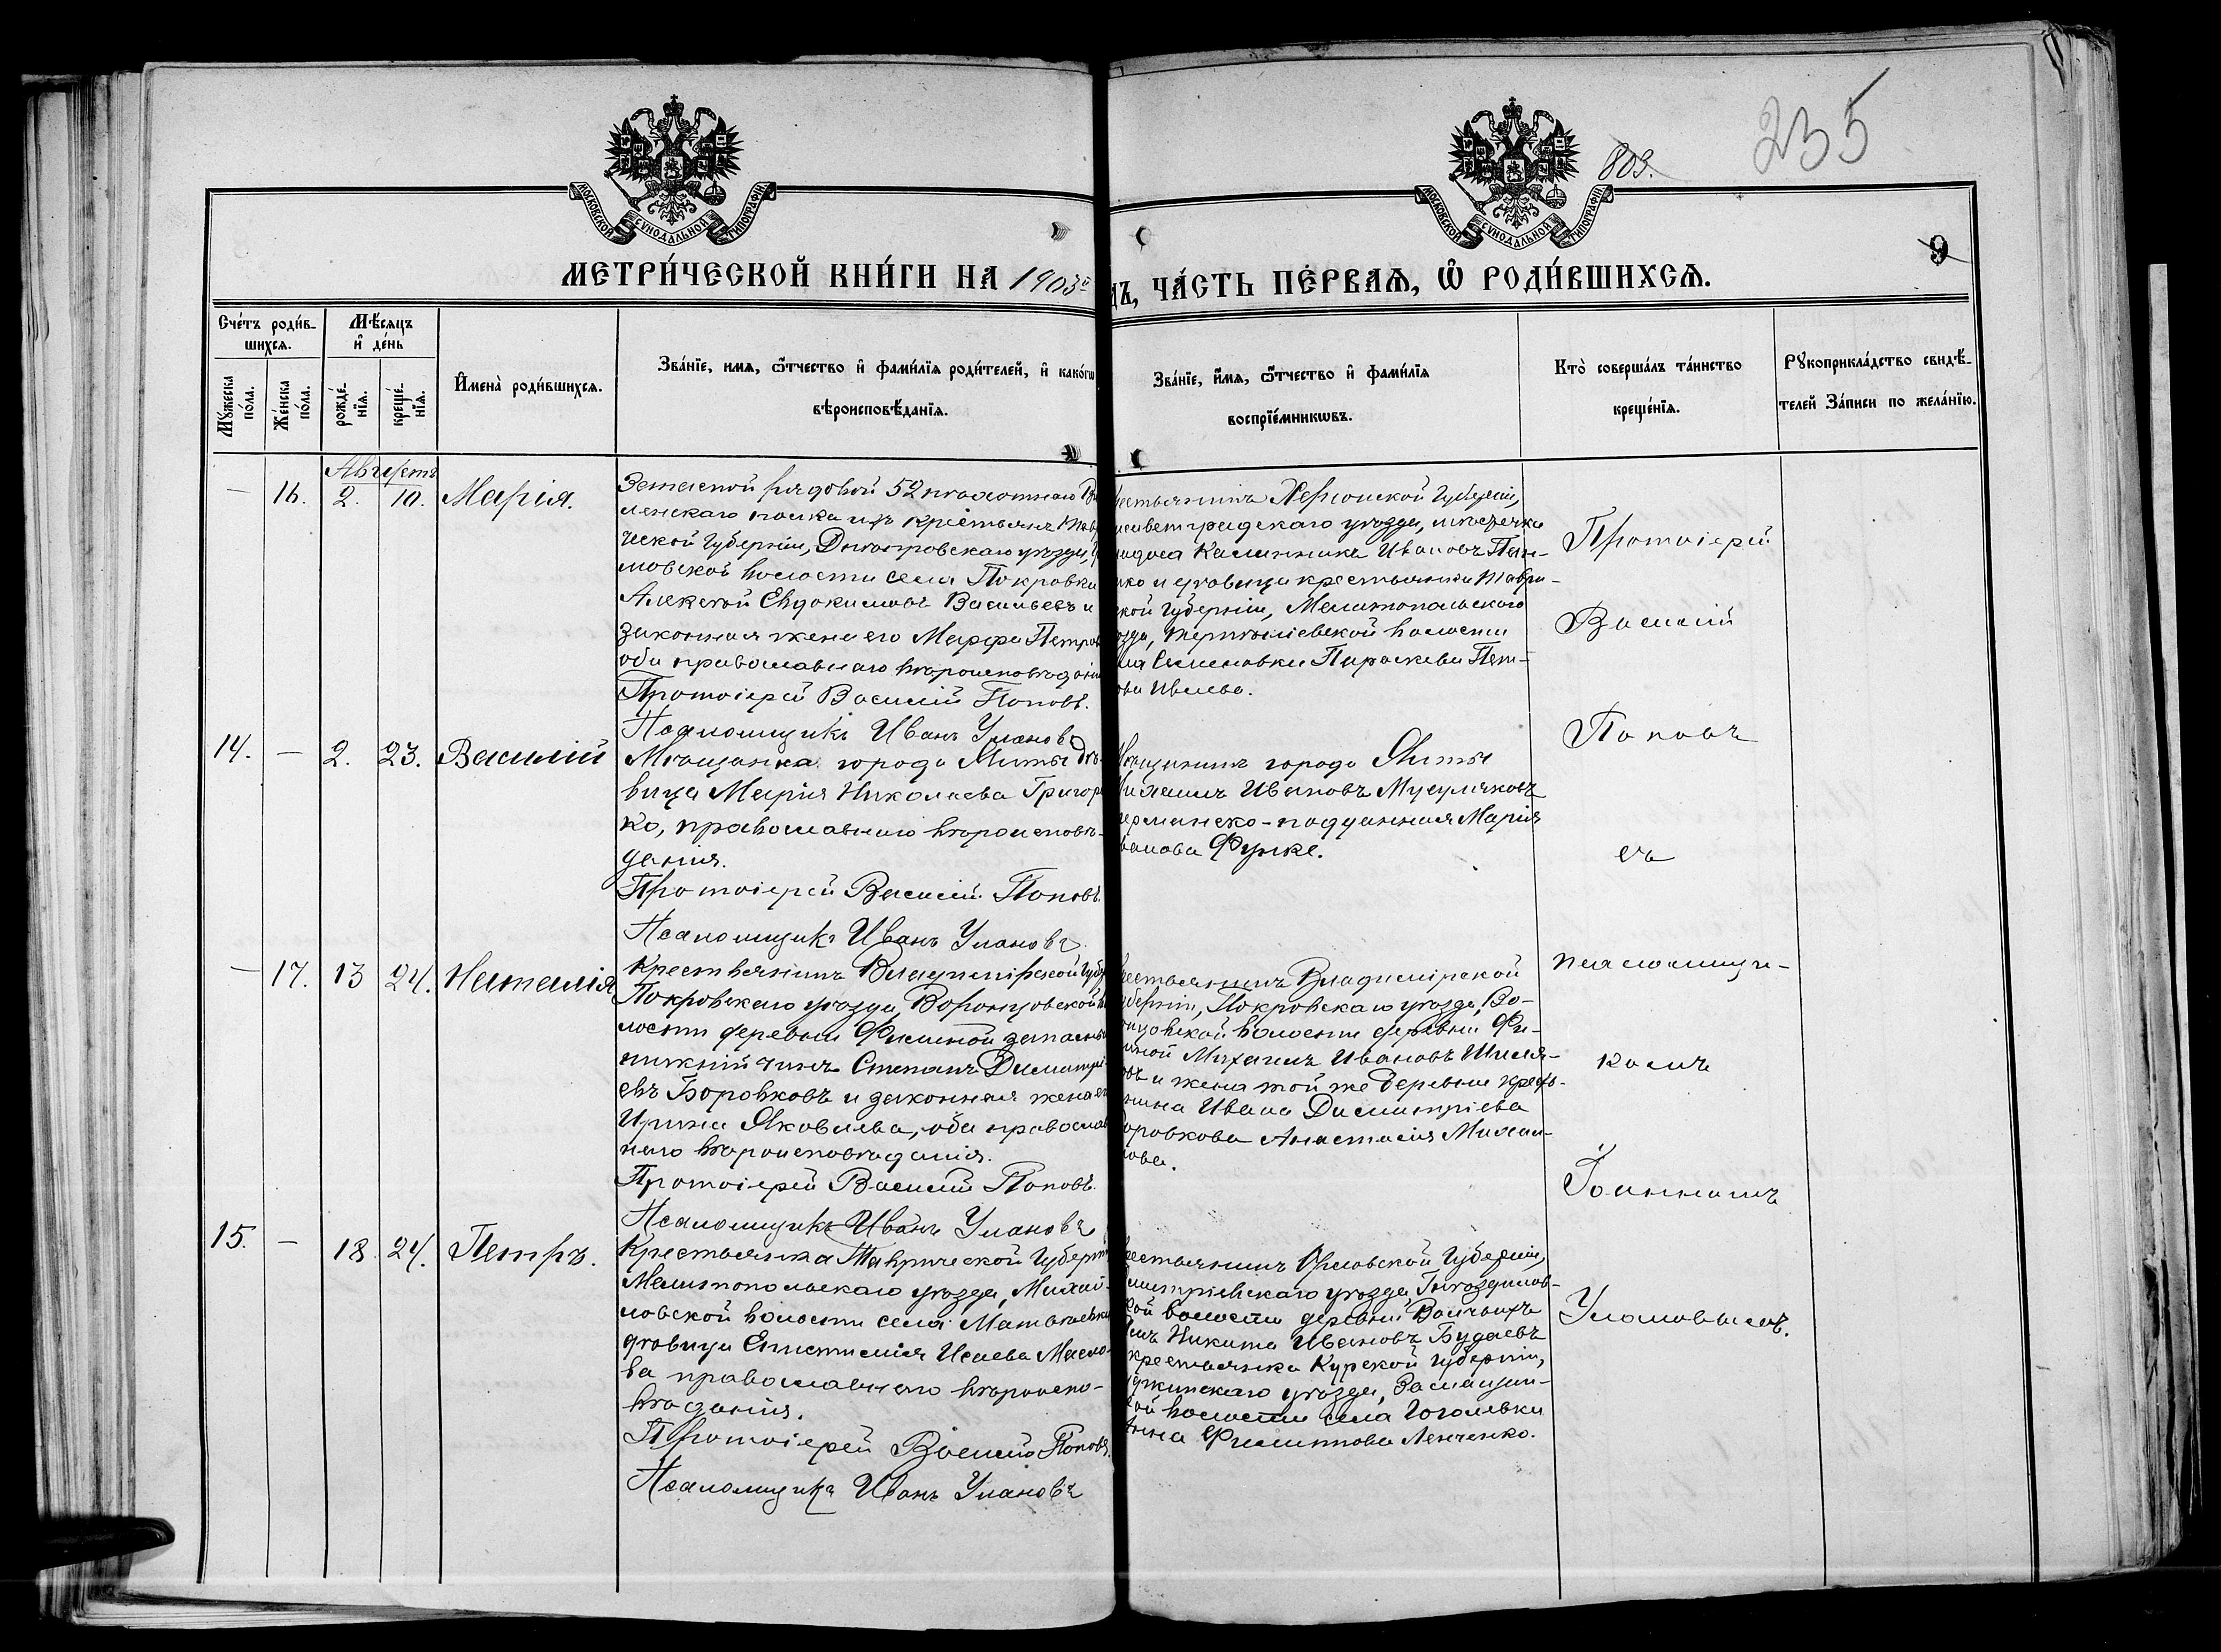 803.
235
МОСКОВСКОЙ СѴНОДАЛЬНОЙ ТИПОГРАФІИ
МОСКОВСКОЙ СѴНОДАЛЬНОЙ ТИПОГРАФІИ
9
МЕТРИ́ЧЕСКОЙ КНИ́ГИ НА 1903й
ДЪ, ЧА́СТЬ ПЕ́РВАѦ, Ѡ҆ РОДИ́ВШИХСѦ.
Сче́тъ роди́в-
шихсѧ.
Мꙋжеска по́ла.
Же́нска по́ла.
Мѣ́сѧцъ
и҆ де́нь
рожде́-нїѧ.
креще́-нїѧ.
И҆мена̀ роди́вшихсѧ.
Зва́нїе, имѧ, ѻ҆́тчество и҆ фами́лїѧ роди́телей, и҆ како́гѡ
вѣроисповѣ́данїѧ.
Зва́нїе, и҆́мѧ, ѻ҆́тчество и҆ фами́лїѧ
воспрїе́мникѡвъ.
Кто̀ соверша́лъ та́инство
креще́нїѧ.
Рꙋкоприкла́дство свидѣ́-
телей За́писи по жела́нїю.
Августъ
— 16. 2. 10. Марія.
Запасной рядовой 52 пѣхотнаго Ви
ленскаго полка изъ крестьянъ Тавр
ческой Губерніи, Днѣпровскаго уѣзда,
мовской волости села Покровки
Алексѣй Евдокимовъ Васильевъ и
законная жена его Марфа Петров
оба православнаго вѣроисповѣданія
Протоіерей Василій Поповъ.
Псаломщикъ Иванъ Улановъ
естьянинъ Херсонской Губерніи,
исаветградскаго уѣзда, мѣстечка
Калинникъ Ивановъ
нко и дѣвица крестьянка Таври-
ской Губерніи, Мелитопольскаго
ѣзда, волости
ла Семеновки Параскева Пет-
ова Ивлева.
14. — 2. 23. Василій
Мѣщанка города Ялты дѣ-
вица Марія Николаева Григор
ко, православнаго вѣроисповѣ-
данія.
Протоіерей Василій Поповъ.
Псаломщикъ Иванъ Улановъ
Мѣщанинъ города Ялты
Михаилъ Ивановъ Мусуляковъ
ерманско-подданная Марія
ванова Функе.
— 17. 13 24. Наталія
Крестьянинъ Владимірской Губ
Покровскаго уѣзда, Воронцовской во
лости деревни Филиной запасный
нижній чинъ Степанъ Димитрі-
евъ Боровковъ и законная жена ег
Ирина Яковлева, оба православ
наго вѣроисповѣданія.
Протоіерей Василій Поповъ.
Псаломщикъ Иванъ Улановъ
рестьянинъ Владимірской
уберніи, Покровскаго уѣзда, Во-
онцовской волости деревни Фи-
линой Михаилъ Ивановъ
овъ и жена той же деревни кресть-
янина Ивана Димитріева
оровкова Анастасія Михаи-
лова.
15. — 18 24. Петръ.
Крестьянка Таврической Губерні
Мелитопольскаго уѣзда, Михай-
ловской волости села Матвѣевки
дѣвица Епистимія Исаева Масло-
ва православнаго вѣроиспо-
вѣданія.
Протоіерей Василій Поповъ.
Псаломщикъ Иванъ Улановъ
рестьянинъ Орловской Губерніи,
митріевскаго уѣзда,
кой волости деревни
Никита Ивановъ Будаевъ
крестьянка Курской Губерніи,
уджинскаго уѣзда,
кой волости села Гоголевки
Анна Филиппова Левченко.
Протоіерей
Василій
Поповъ
съ
псаломщи-
комъ
Іоанномъ
Улановымъ.